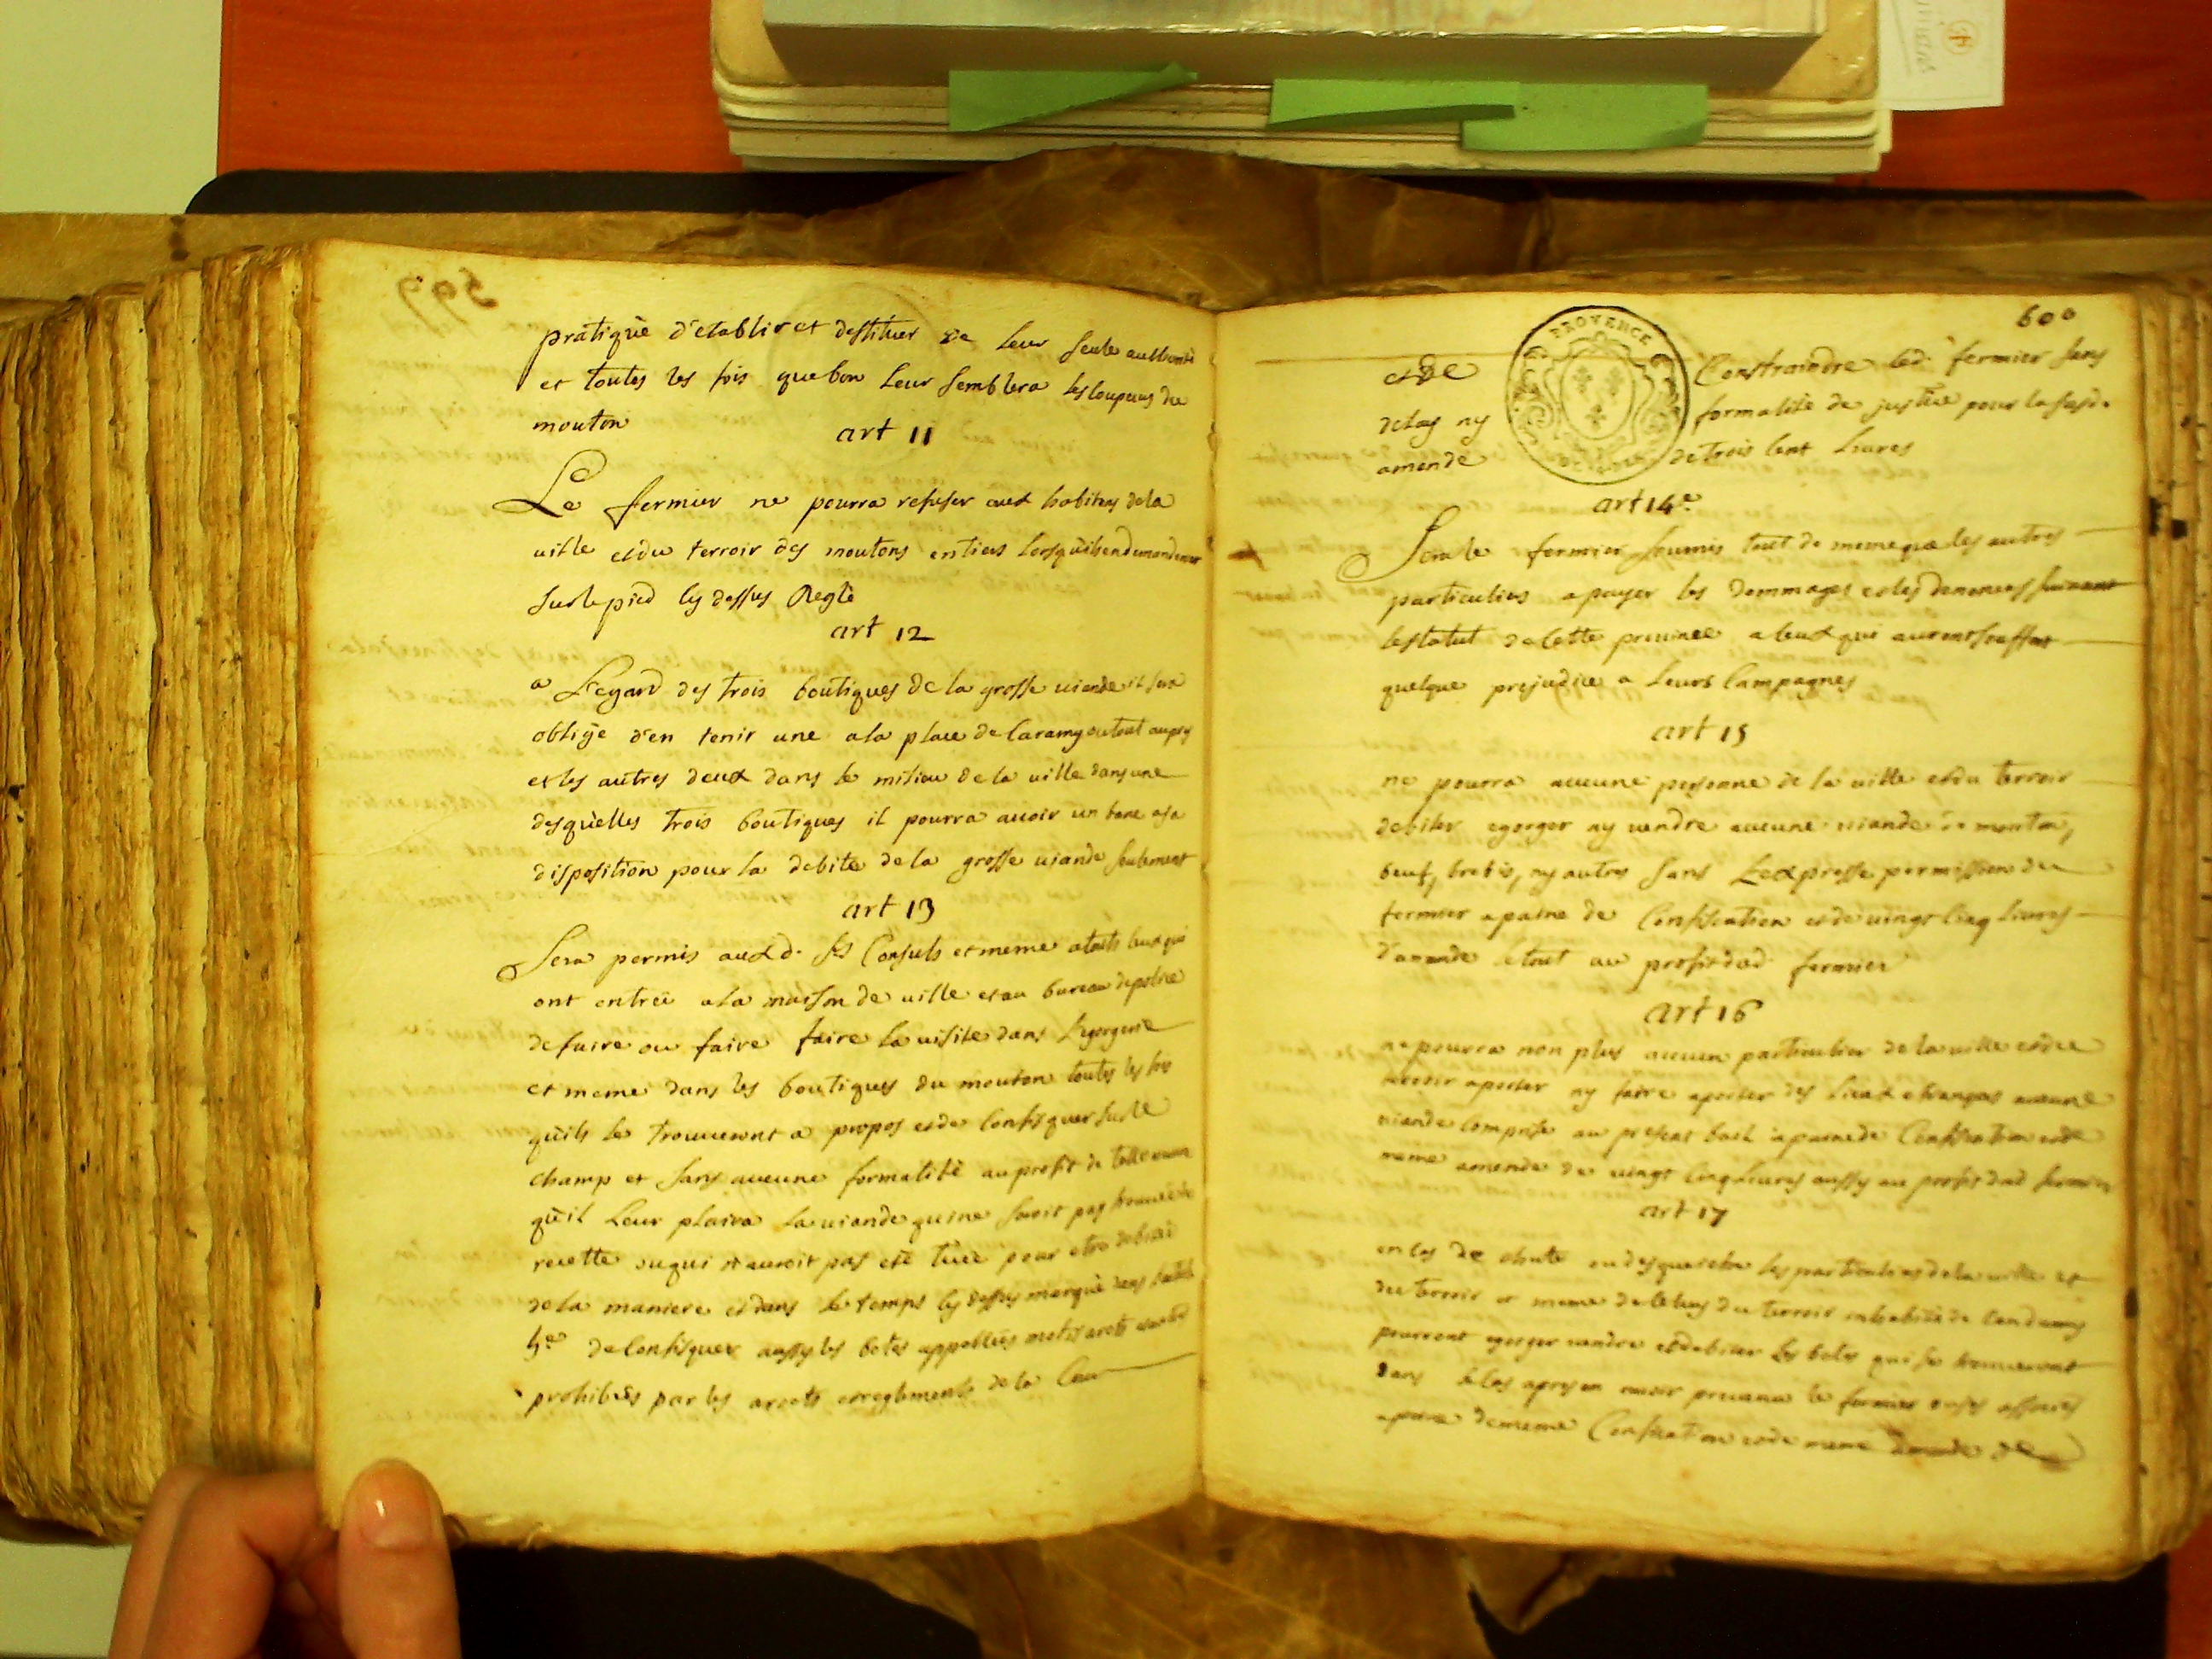 599
pratique d'etablir et destituer de leur seule authorité
et toutes les fois que bon leur semblera les coupeurs de
mouton
art 11
Le fermier ne pourra refuser aux habitans dela
ville et du terroir des moutons entiers lorsqu'ils en demanderont
sur le pied cy dessus Reglé
art 12
a L'egard des trois boutiques de la grosse viande il sera
obligé d'en tenir une a la place de Caramy ou tout aupres
et les autres deux dans le milieu de la ville dans une
desquelles trois boutiques il pourra avoir un banc a sa
disposition pour la debite de la grosse viande seulement
art 13
Sera permis aux d. Srs Consuls et meme a touts ceux qui
ont entrée a la maison de ville et au bureau de police
de faire ou faire faire la visite dans L'egorgerie
et meme dans les boutiques du mouton toutes les fois
qu'ils le trouveront a propos et de confisquer sur le
champ et sans aucune formalité au profit de telle
qu'il Leur plaira la viande qui ne seroit pas trouvée de
recette ou qui n'auroit pas eté tuée pour etre debitée
de la maniere et dans le temps cy dessus marqué dans l'article
5e de confisquer aussy les betes appellées
prohibées par les arrets et reglements de la Cour
600
PROVENCE
et de Constraindre led. fermier sans
delay ny formalité de justice pour la susd.
amende de trois cent Livres
art 14e
Sera le fermier soumis tout de meme que les autres
particuliers a payer les dommages et les denonces suivant
le statut de cette province a ceux qui auront souffert
quelque prejudice a Leurs Campagnes
art 15
ne pourra aucune personne de la ville et du terroir
debiter egorger ny vendre aucune viande de mouton,
beuf, brebis, ny autres sans L'expresse permission du
fermier a paine de Confiscation et de vingt Cinq Livres
d'amende le tout au profit dud. fermier
art 16
ne pourra non plus aucun particulier de la ville et du
terroir aporter ny faire aporter des Lieux etrangers aucune
viande comprise au present bail a paine de Confiscation et de
meme amende de vingt Cinq Livres aussy au profit dud fermier
art 17
en cas de chute ou les particuliers de la ville et
du terroir et meme de du terroir inhabité de
pourront egorger vendre et debiter les betes qui se trouveront
dans le cas apres en avoir prevenu le fermier ou ses
a paine de meme Confiscation et de meme amende de